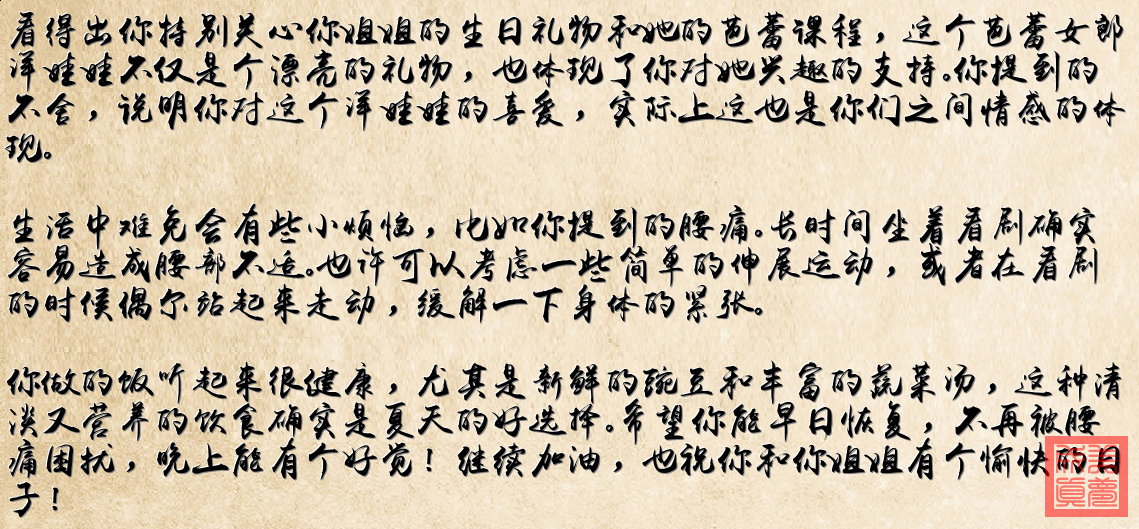 看得出你特别关心你姐姐的生日礼物和她的芭蕾课程，这个芭蕾女郎
洋娃娃不仅是个漂亮的礼物，也体现了你对她兴趣的支持。你提到的
不舍，说明你对这个洋娃娃的喜爱，实际上这也是你们之间情感的体
现。
生活中难免会有些小烦恼，比如你提到的腰痛。长时间坐着看剧确实
容易造成腰部不适。也许可以考虑一些简单的伸展运动，或者在看剧
的时候偶尔站起来走动，缓解一下身体的紧张。
你做的饭听起来很健康，尤其是新鲜的豌豆和丰富的蔬菜汤，这种清
淡又营养的饮食确实是夏天的好选择。希望你能早日恢复，不再被腰
痛困扰，晚上能有个好觉！继续加油，也祝你和你姐姐有个愉快的日
子！